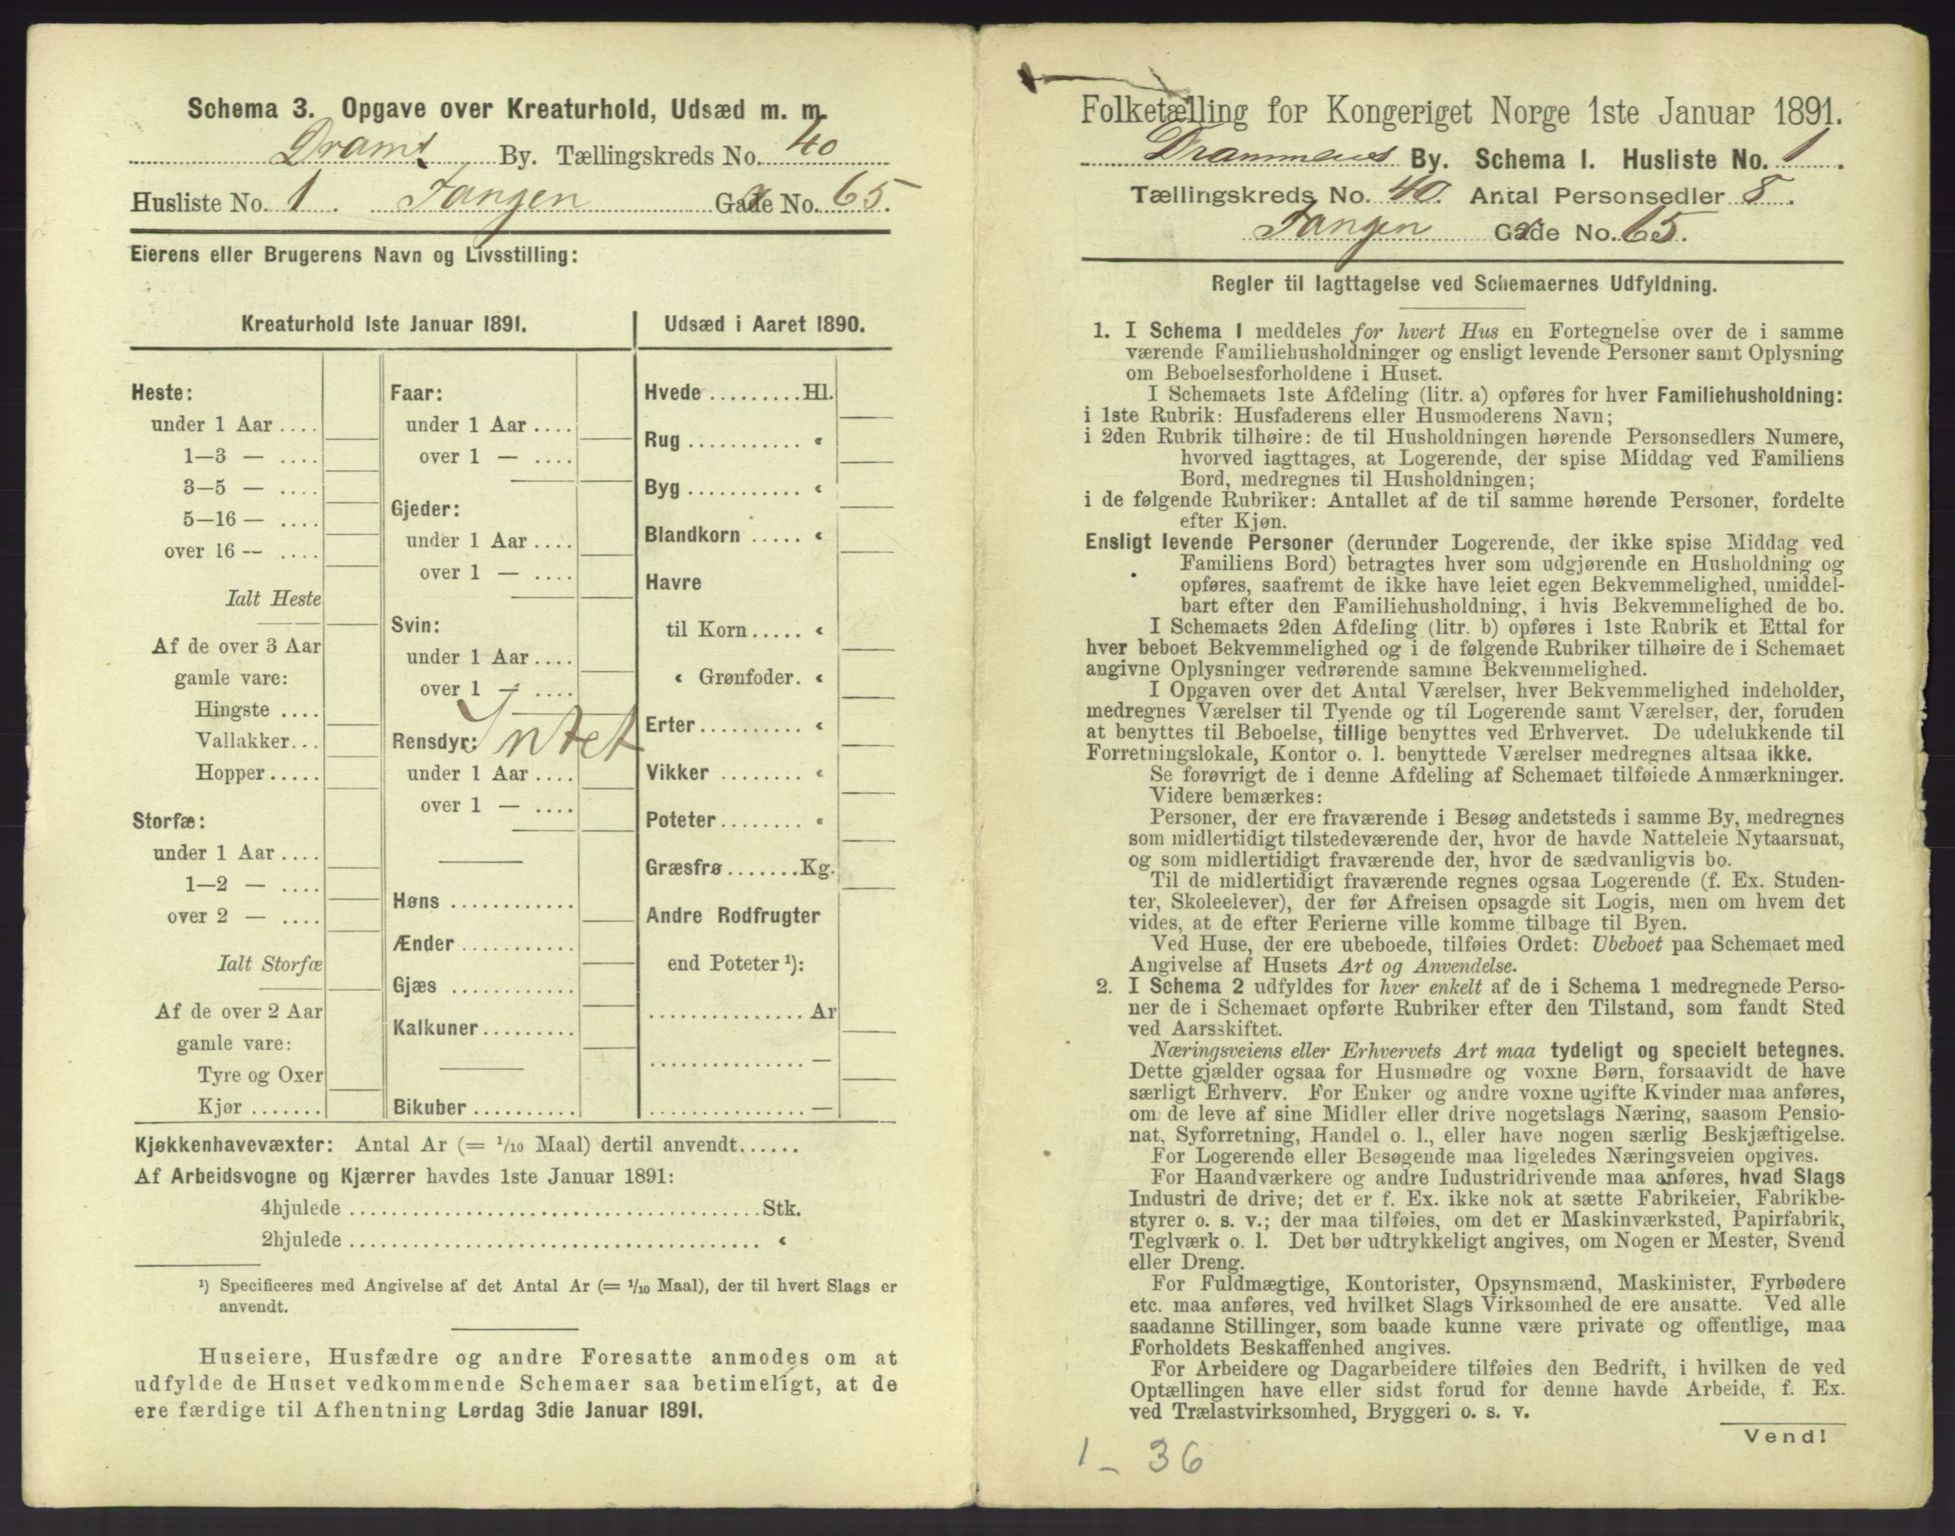 Schema 3. Opgave over Kreaturhold, Udsæd m. m.
Dramt By. Tællingskreds No. 40
Husliste No. 1. Tangen Gade No. 65.
Eierens eller Brugerens Navn og Livsstilling:
Kreaturhold 1ste Januar 1891.
Heste:
under 1 Aar ....
1—3 — ....
3—5 — ....
5—16 — ....
over 16 — ....
Ialt Heste
Af de over 3 Aar
gamle vare:
Hingste ....
Vallakker...
Hopper.....
Storfæ:
under 1 Aar ....
1—2 — ....
over 2 — ....
Ialt Storfæ
Af de over 2 Aar
gamle vare:
Tyre og Oxer
Kjør .......
Faar:
under 1 Aar ....
over 1 — ....
Gjeder:
under 1 Aar ....
over 1 — ....
Svin:
under 1 Aar ....
over 1 — ....
Intet
Rensdyr:
under 1 Aar ....
over 1 — ....
Høns ............
Ænder ...........
Gjæs ............
Kalkuner.........
Bikuber ..........
Udsæd i Aaret 1890.
Hvede .........Hl.
Rug ........... «
Byg ........... «
Blandkorn ..... «
Havre
til Korn ..... «
« Grønfoder. «
Erter .......... «
Vikker ........ «
Poteter........ «
Græsfrø .......Kg.
Andre Rodfrugter
end Poteter ¹):
...............Ar
............... —
............... —
Kjøkkenhavevæxter: Antal Ar (= 1/10 Maal) dertil anvendt......
Af Arbeidsvogne og Kjærrer havdes 1ste Januar 1891:
4hjulede ........................................Stk.
2hjulede ........................................ «
¹) Specificeres med Angivelse af det Antal Ar (= 1/10 Maal), der til hvert Slags er
anvendt.
Huseiere, Husfædre og andre Foresatte anmodes om at
udfylde de Huset vedkommende Schemaer saa betimeligt, at de
ere færdige til Afhentning Lørdag 3die Januar 1891.
Folketælling for Kongeriget Norge 1ste Januar 1891.
Drammens By. Schema 1. Husliste No. 1.
Tællingskreds No. 40. Antal Personsedler 8.
Tangen Gade No. 65.
Regler til Iagttagelse ved Schemaernes Udfyldning.
1. I Schema 1 meddeles for hvert Hus en Fortegnelse over de i samme
værende Familiehusholdninger og ensligt levende Personer samt Oplysning
om Beboelsesforholdene i Huset.
I Schemaets 1ste Afdeling (litr. a) opføres for hver Familiehusholdning:
i 1ste Rubrik: Husfaderens eller Husmoderens Navn;
i 2den Rubrik tilhøire: de til Husholdningen hørende Personsedlers Numere,
hvorved iagttages, at Logerende, der spise Middag ved Familiens
Bord, medregnes til Husholdningen;
i de følgende Rubriker: Antallet af de til samme hørende Personer, fordelte
efter Kjøn.
Ensligt levende Personer (derunder Logerende, der ikke spise Middag ved
Familiens Bord) betragtes hver som udgjørende en Husholdning og
opføres, saafremt de ikke have leiet egen Bekvemmelighed, umiddel-
bart efter den Familiehusholdning, i hvis Bekvemmelighed de bo.
I Schemaets 2den Afdeling (litr. b) opføres i 1ste Rubrik et Ettal for
hver beboet Bekvemmelighed og i de følgende Rubriker tilhøire de i Schemaet
angivne Oplysninger vedrørende samme Bekvemmelighed.
I Opgaven over det Antal Værelser, hver Bekvemmelighed indeholder,
medregnes Værelser til Tyende og til Logerende samt Værelser, der, foruden
at benyttes til Beboelse, tillige benyttes ved Erhvervet. De udelukkende til
Forretningslokale, Kontor o. l. benyttede Værelser medregnes altsaa ikke.
Se forøvrigt de i denne Afdeling af Schemaet tilføiede Anmærkninger.
Videre bemærkes:
Personer, der ere fraværende i Besøg andetsteds i samme By, medregnes
som midlertidigt tilstedeværende der, hvor de havde Natteleie Nytaarsnat,
og som midlertidigt fraværende der, hvor de sædvanligvis bo.
Til de midlertidigt fraværende regnes ogsaa Logerende (f. Ex. Studen-
ter, Skoleelever), der før Afreisen opsagde sit Logis, men om hvem det
vides, at de efter Ferierne ville komme tilbage til Byen.
Ved Huse, der ere ubeboede, tilføies Ordet: Ubeboet paa Schemaet med
Angivelse af Husets Art og Anvendelse.
2. I Schema 2 udfyldes for hver enkelt af de i Schema 1 medregnede Perso-
ner de i Schemaet opførte Rubriker efter den Tilstand, som fandt Sted
ved Aarsskiftet.
Næringsveiens eller Erhvervets Art maa tydeligt og specielt betegnes.
Dette gjælder ogsaa for Husmødre og voxne Børn, forsaavidt de have
særligt Erhverv. For Enker og andre voxne ugifte Kvinder maa anføres,
om de leve af sine Midler eller drive nogetslags Næring, saasom Pensio-
nat, Syforretning, Handel o. l., eller have nogen særlig Beskjæftigelse.
For Logerende eller Besøgende maa ligeledes Næringsveien opgives.
For Haandværkere og andre Industridrivende maa anføres, hvad Slags
Industri de drive; det er f. Ex. ikke nok at sætte Fabrikeier, Fabrikbe-
styrer o. s. v.; der maa tilføies, om det er Maskinværksted, Papirfabrik,
Teglværk o. l. Det bør udtrykkeligt angives, om Nogen er Mester, Svend
eller Dreng.
For Fuldmægtige, Kontorister, Opsynsmænd, Maskinister, Fyrbødere
etc. maa anføres, ved hvilket Slags Virksomhed de ere ansatte. Ved alle
saadanne Stillinger, som baade kunne være private og offentlige, maa
Forholdets Beskaffenhed angives.
For Arbeidere og Dagarbeidere tilføies den Bedrift, i hvilken de ved
Optællingen have eller sidst forud for denne havde Arbeide, f. Ex.
ved Trælastvirksomhed, Bryggeri o. s. v.
Vend!
1 – 36